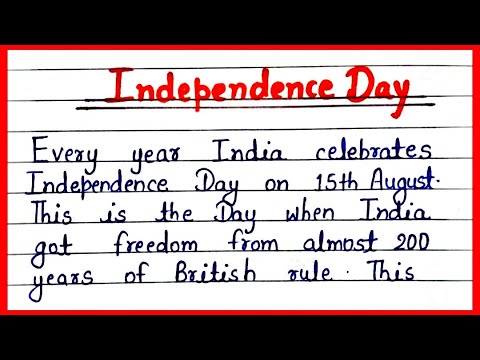 Independence Day
Every year India celebrates
Independence Day on 15th August.
This is the Day when India
got freedom from almost 200
years of British rule. This